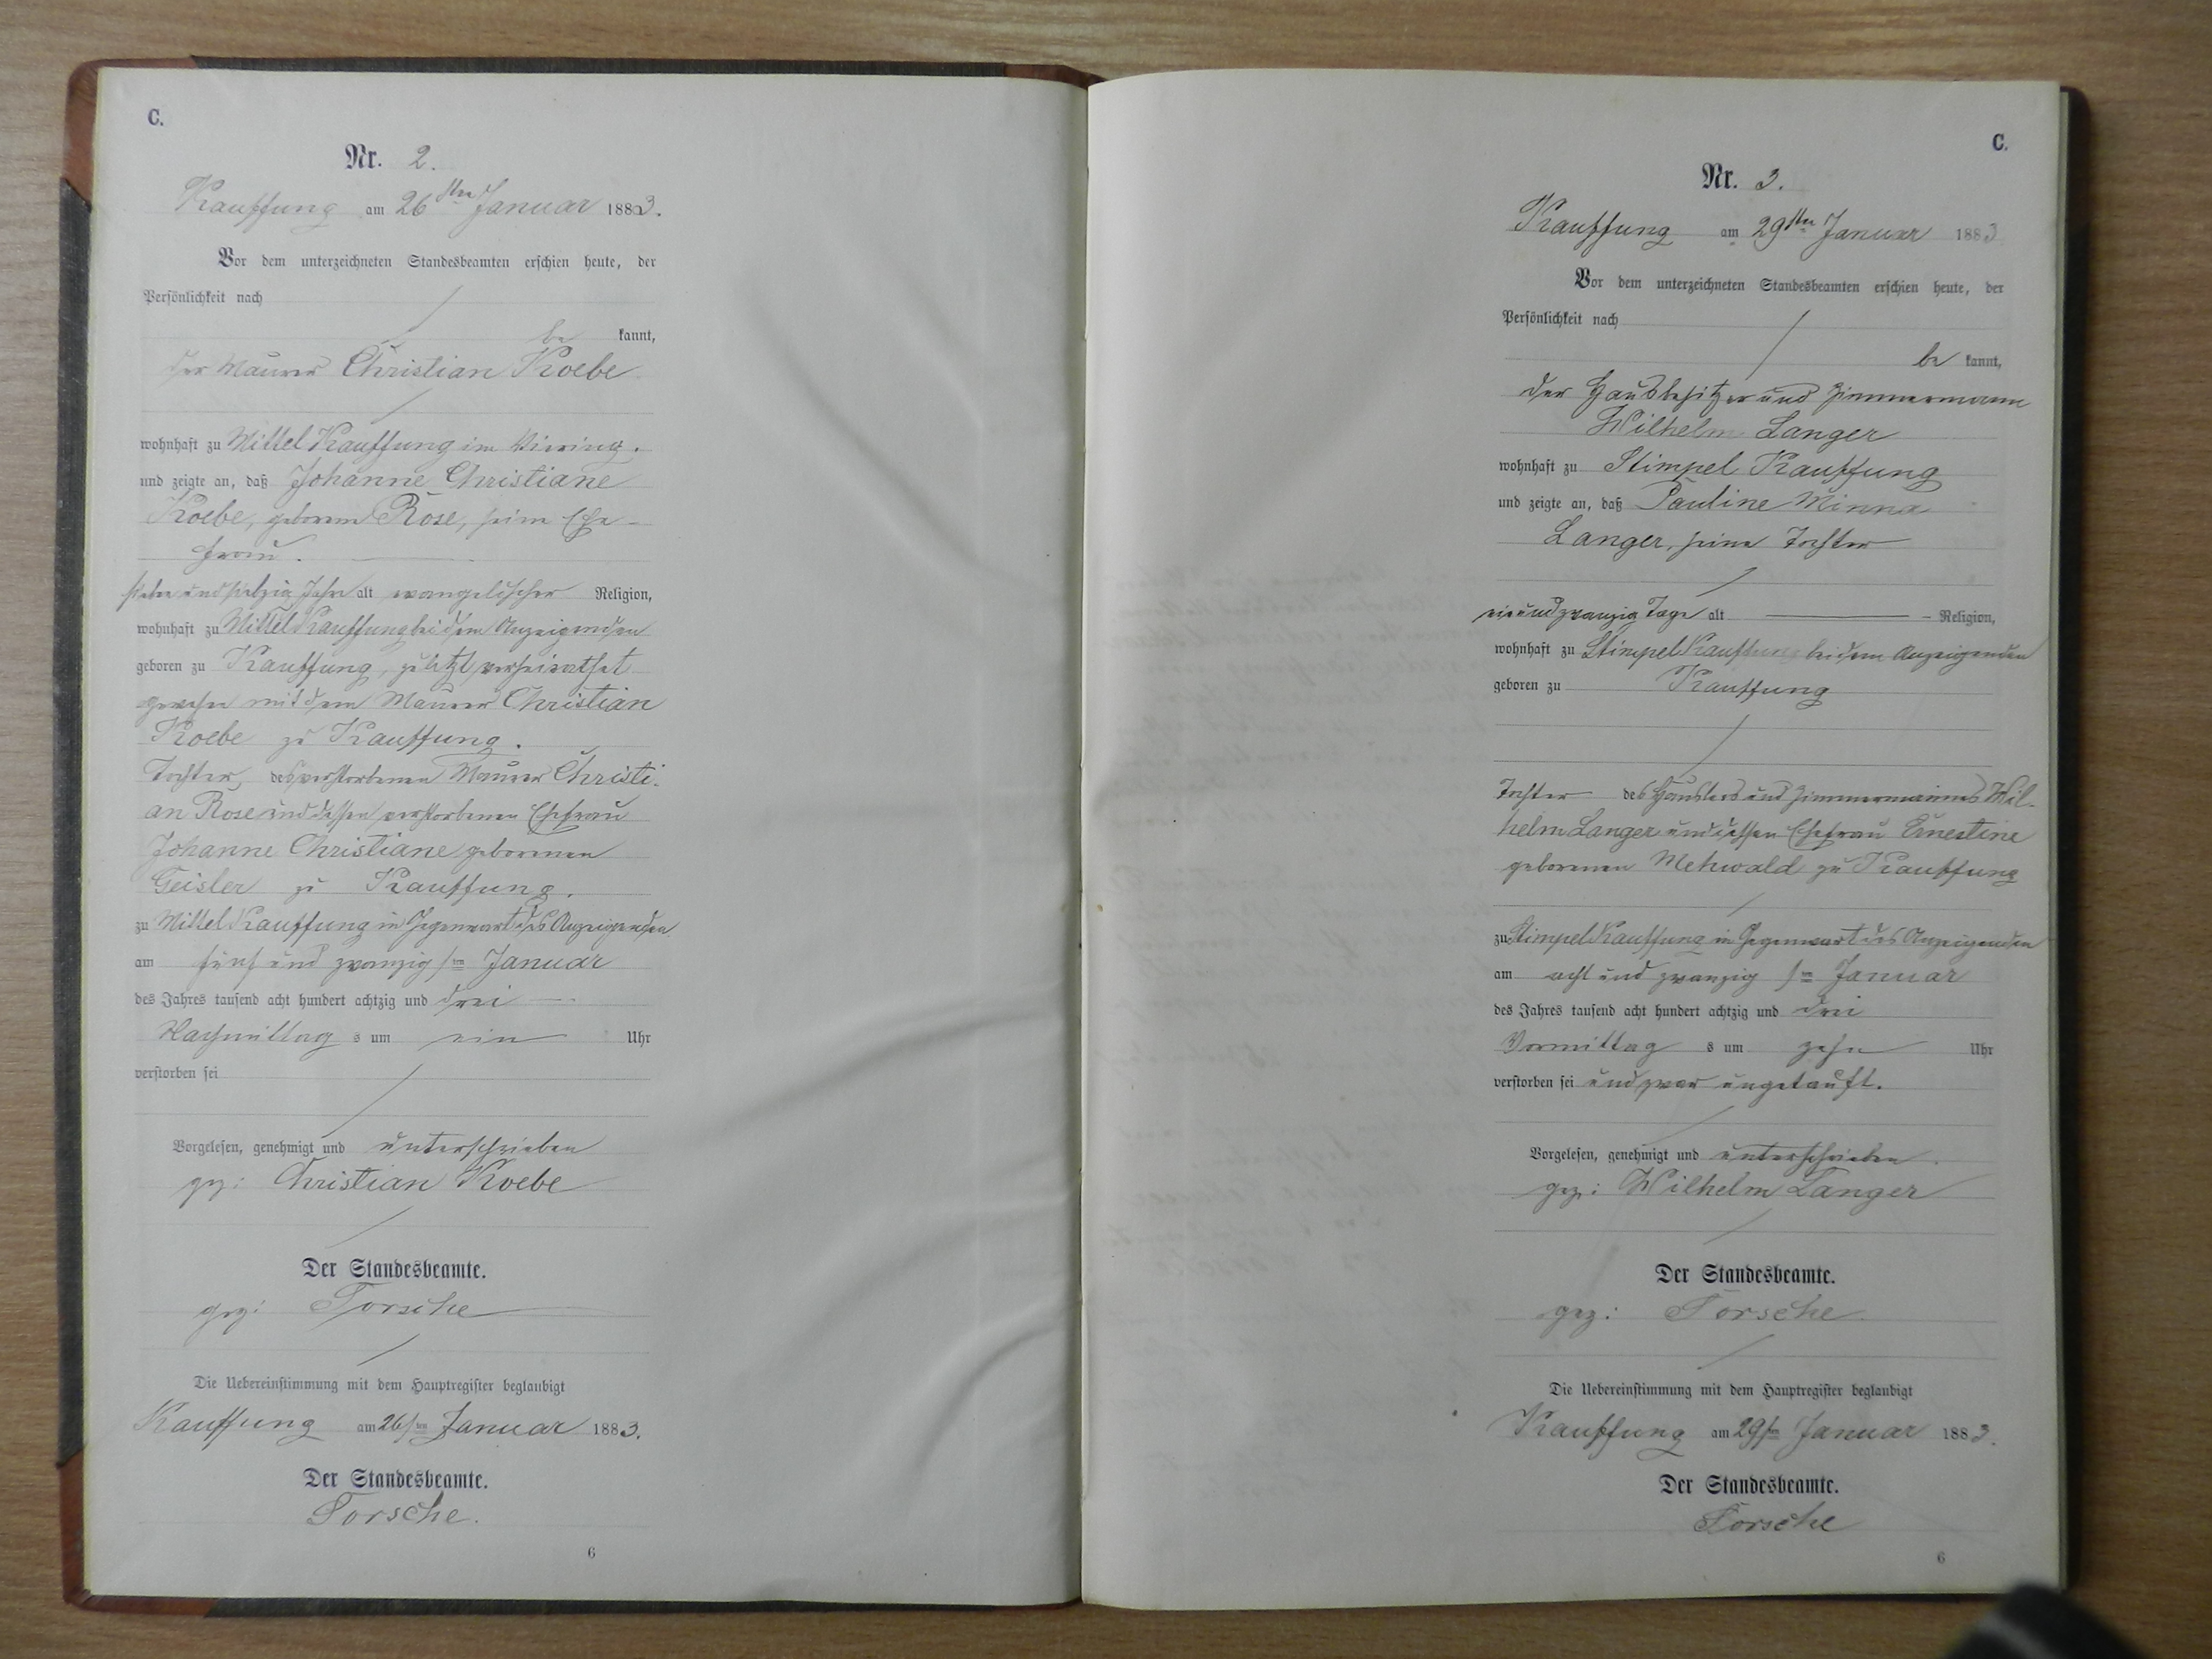 C.
Nr. 2.
Kauffung am 26sten Januar 1883.
Vor dem unterzeichneten Standesbeamten erschien heute, der
Persönlichkeit nach
be kannt,
der Maurer Christian Koebe
wohnhaft zu Mittel Kauffung im
und zeigte an, daß Johanne Christiane
Koebe, geborene Rose, seine Ehe-
frau.
sieben und siebzig Jahre alt evangelischer Religion,
wohnhaft zu Mittel Kauffung bei dem Anzeigenden
geboren zu Kauffung, zuletzt verheirathet
gewesen mit dem Maurer Christian
Koebe zu Kauffung.
Tochter, des verstorbenen Maurer Christi-
an Rose und dessen verstorbenen Ehefrau
Johanne Christiane geborenen
Geisler zu Kauffung.
zu Mittel Kauffung in Gegenwart des Anzeigenden
am fünf und zwanzigsten Januar
des Jahres tausend acht hundert achtzig und drei
Nachmittag s um ein Uhr
verstorben sei
Vorgelesen, genehmigt und unterschrieben
gez: Christian Koebe
Der Standesbeamte.
gez: Torsche
Die Uebereinstimmung mit dem Hauptregister beglaubigt
Kauffung am 26sten Januar 1883.
Der Standesbeamte.
Torsche.
6
C.
Nr. 3.
Kauffung am 29sten Januar 1883
Vor dem unterzeichneten Standesbeamten erschien heute, der
Persönlichkeit nach
be kannt,
der Hausbesitzer und Zimmermann
Wilhelm Langer
wohnhaft zu Stimpel Kauffung
und zeigte an, daß Pauline Minna
Langer, seine Tochter
ein und zwanzig Tage alt Religion,
wohnhaft zu Stimpel Kauffung bei dem Anzeigenden
geboren zu Kauffung
Tochter des Häuslers und Zimmermannes Wil-
helm Langer und dessen Ehefrau Ernestine
geborenen Mehwald zu Kauffung
zu Stimpel Kauffung in Gegenwart des Anzeigenden
am acht und zwanzigsten Januar
des Jahres tausend acht hundert achtzig und drei
Vormittag s um zehn Uhr
verstorben sei und zwar ungetauft.
Vorgelesen, genehmigt und unterschrieben.
gez: Wilhelm Langer
Der Standesbeamte.
gez: Torsche.
Die Uebereinstimmung mit dem Hauptregister beglaubigt
Kauffung am 29sten Januar 1883.
Der Standesbeamte.
Torsche
6